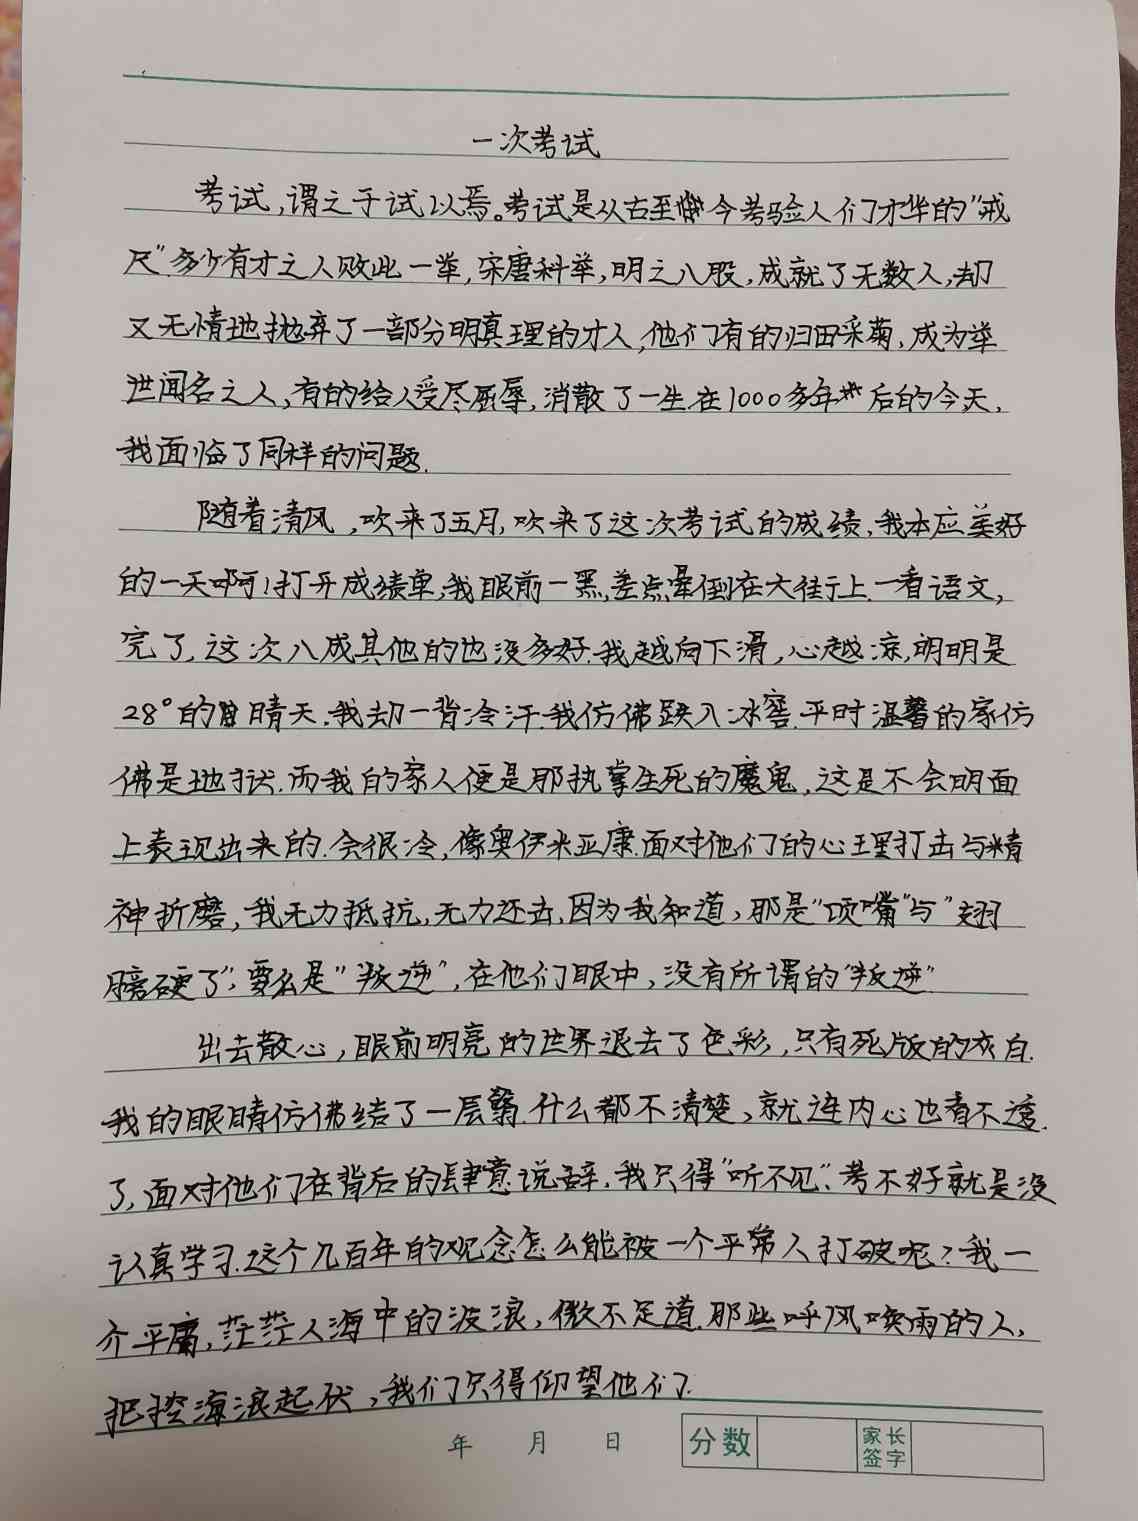 一次考试
考试,谓之于试以焉。考试是从古至今考验人们才华的“戒
尺”.多少有才之人败此一举,宋唐科举,明之八股,成就了无数人,却
又无情地抛弃了一部分明真理的才人,他们有的归田采菊,成为举
世闻名之人,有的给人受尽屈辱,消散了一生.在1000多年后的今天,
我面临了同样的问题.
随着清风,吹来了五月,吹来了这次考试的成绩,我本应美好
的一天啊!打开成绩单,我眼前一黑,差点晕倒在大街上.一看语文,
完了,这次八成其他的也没多好.我越向下滑,心越凉,明明是
28°的晴天.我却一背冷汗.我仿佛跌入冰窖.平时温馨的家仿
佛是地狱.而我的家人便是那执掌生死的魔鬼,这是不会明面
上表现出来的.会很冷,像奥伊米亚康.面对他们的心理打击与精
神折磨,我无力抵抗,无力还击,因为我知道,那是“顶嘴”与“翅
膀硬了”;要么是“叛逆”,在他们眼中,没有所谓的“叛逆”
出去散心,眼前明亮的世界退去了色彩,只有死版的灰白.
我的眼睛仿佛结了一层翳.什么都不清楚,就连内心也看不透
了,面对他们在背后的肆意说辞.我只得“听不见”.考不好就是没
认真学习.这个几百年的观念怎么能被一个平常人打破呢?我一
介平庸,茫茫人海中的波浪,微不足道.那些呼风唤雨的人,
把控海浪起伏,我们只得仰望他们.
年 月 日 分数 家长签字